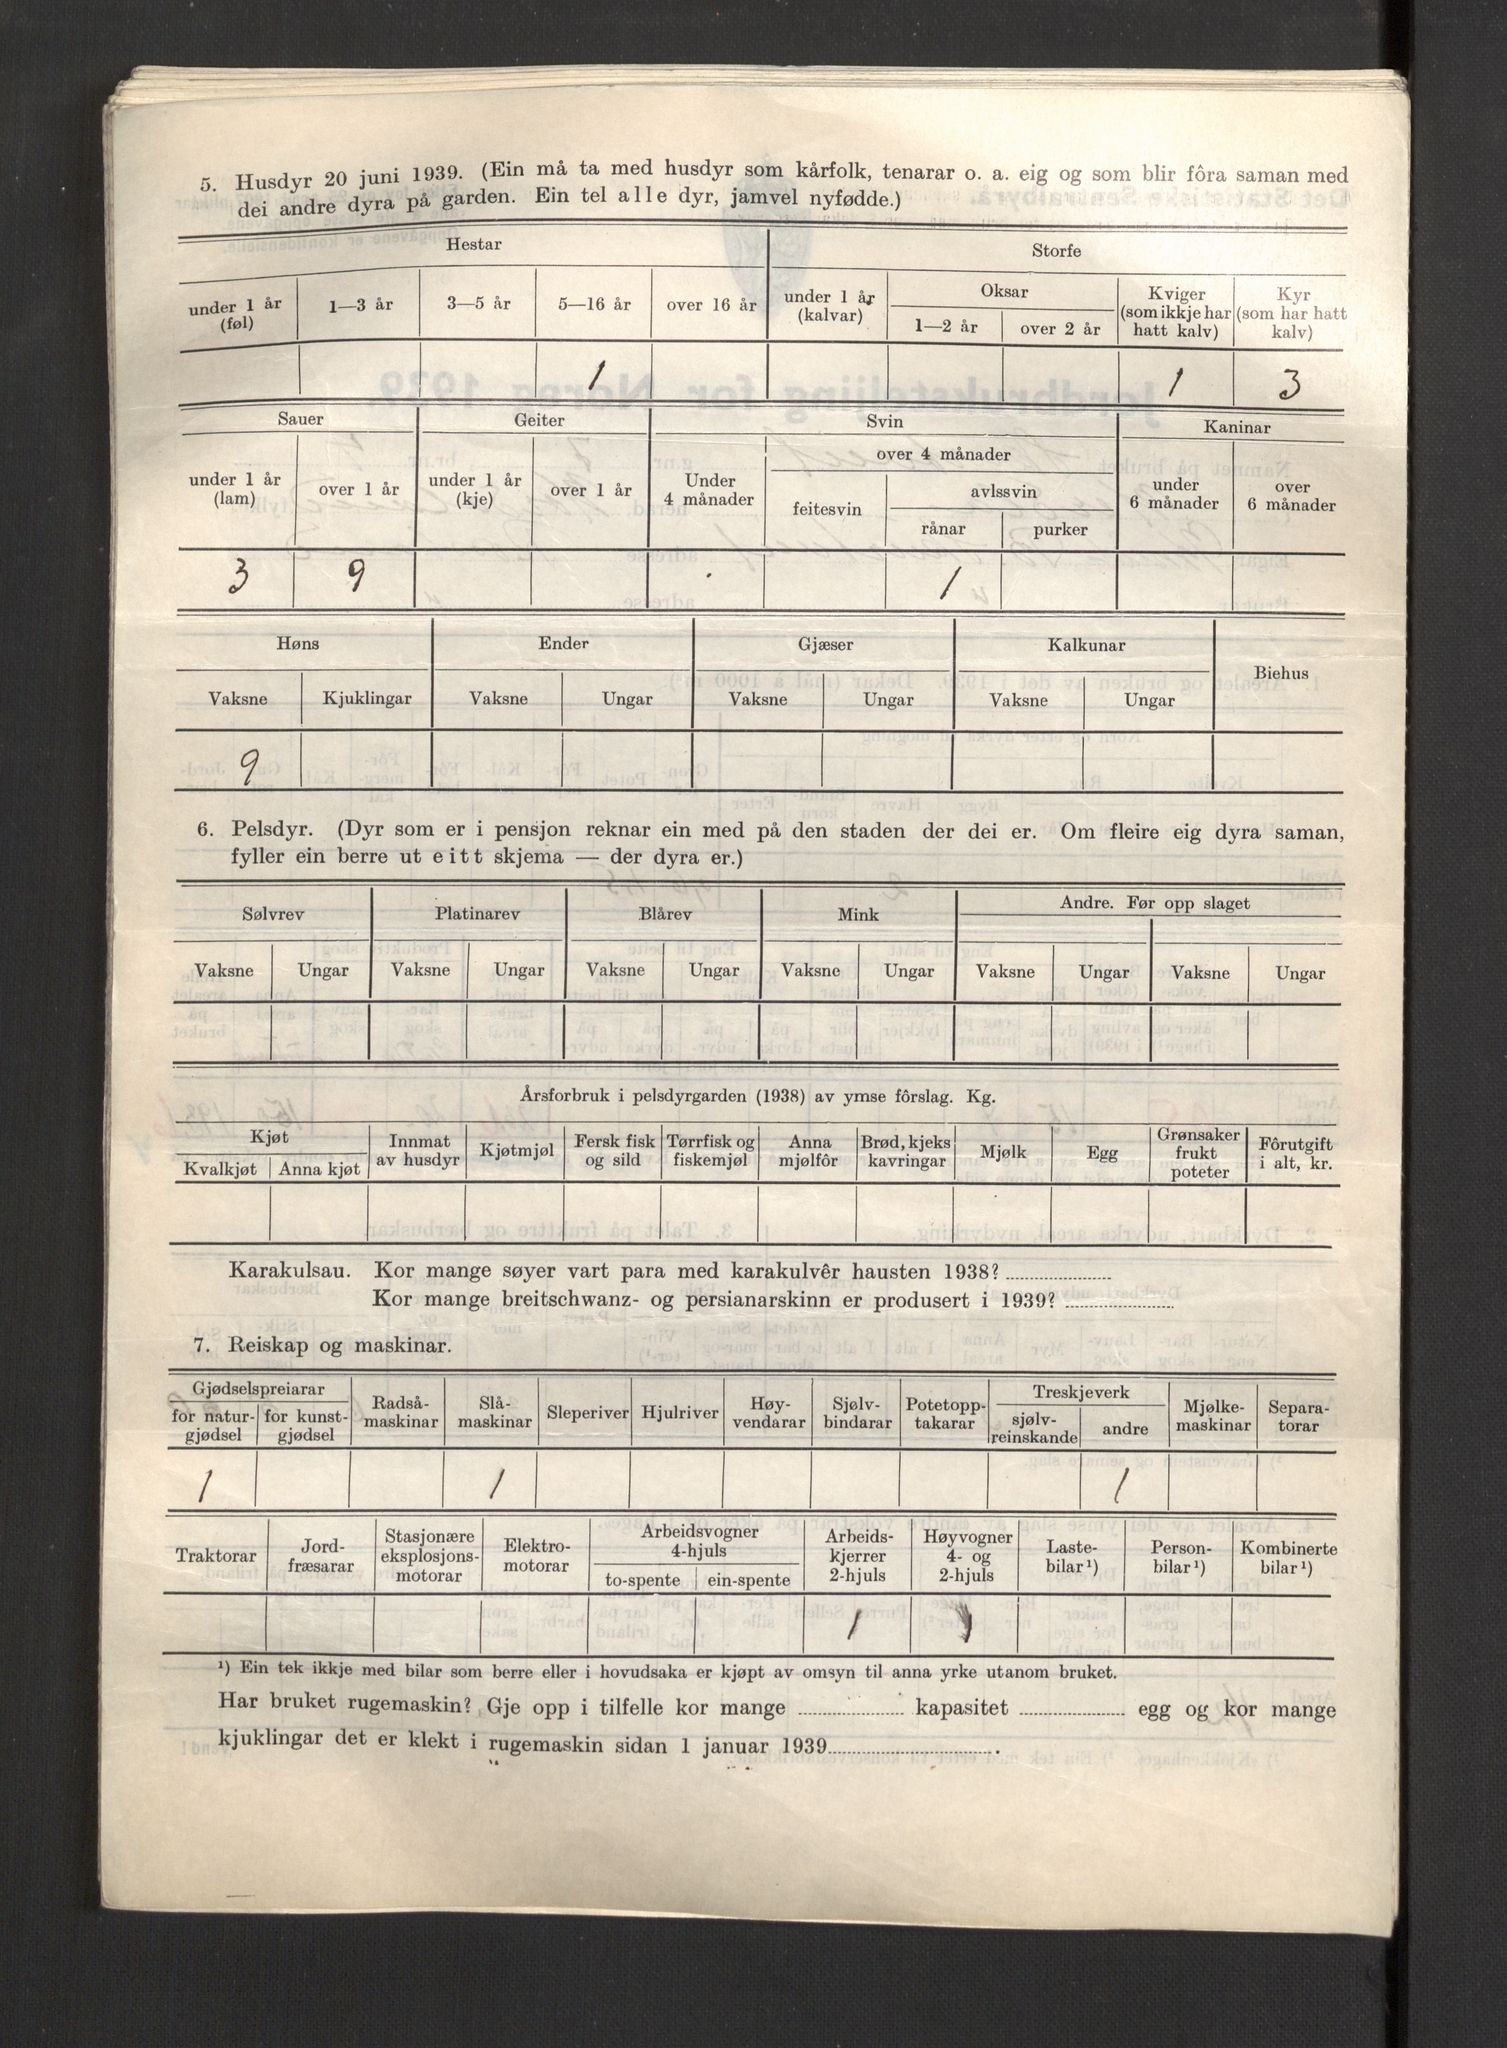 5. Husdyr 20 juni 1939. (Ein må ta med husdyr som kårfolk, tenarar o. a. eig og som blir fôra saman med
dei andre dyra på garden. Ein tel alle dyr, jamvel nyfødde.)
Hestar Storfe
under 1 år (føl) 1—3 år 3—5 år 5—16 år over 16 år under 1 år (kalvar) Oksar 1—2 år over 2 år Kviger (som ikkje har hatt kalv) Kyr (som har hatt kalv)
1 1 3
Sauer Geiter Svin Kaninar
under 1 år (lam) over 1 år under 1 år (kje) over 1 år Under 4 månader over 4 månader feitesvin avlssvin rånar purker under 6 månader over 6 månader
3 9 1
Høns Ender Gjæser Kalkunar Biehus
Vaksne Kjuklingar Vaksne Ungar Vaksne Ungar Vaksne Ungar
9
6. Pelsdyr. (Dyr som er i pensjon reknar ein med på den staden der dei er. Om fleire eig dyra saman,
fyller ein berre ut eitt skjema — der dyra er.)
Sølvrev Platinarev Blårev Mink Andre. Før opp slaget
Vaksne Ungar Vaksne Ungar Vaksne Ungar Vaksne Ungar Vaksne Ungar Vaksne Ungar
Årsforbruk i pelsdyrgarden (1938) av ymse fôrslag. Kg.
Kjøt Kvalkjøt Anna kjøt Innmat av husdyr Kjøtmjøl Fersk fisk og sild Tørrfisk og fiskemjøl Anna mjølfôr Brød, kjeks kavringar Mjølk Egg Grønsaker frukt poteter Fôrutgift i alt, kr.
Karakulsau. Kor mange søyer vart para med karakulvêr hausten 1938?
Kor mange breitschwanz- og persianarskinn er produsert i 1939?
7. Reiskap og maskinar.
Gjødselspreiarar for naturgjødsel for kunstgjødsel Radsåmaskinar Slåmaskinar Sleperiver Hjulriver Høyvendarar Sjølvbindarar Potetopptakarar Treskjeverk sjølvreinskande andre Mjølkemaskinar Separatorar
1 1 1
Traktorar Jordfræsarar Stasjonære eksplosjonsmotorar Elektromotorar Arbeidsvogner 4-hjuls to-spente ein-spente Arbeidskjerrer 2-hjuls Høyvogner 4- og 2-hjuls Lastebilar ¹) Personbilar ¹) Kombinerte bilar ¹)
1 1
¹) Ein tek ikkje med bilar som berre eller i hovudsaka er kjøpt av omsyn til anna yrke utanom bruket.
Har bruket rugemaskin? Gje opp i tilfelle kor mange kapasitet egg og kor mange
kjuklingar det er klekt i rugemaskin sidan 1 januar 1939